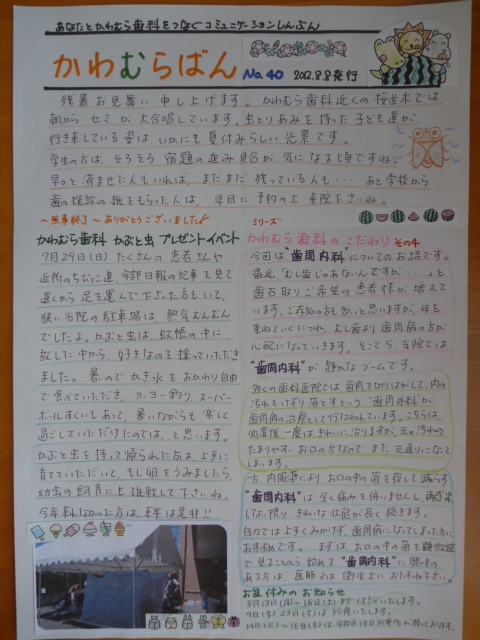 あなたとかわむら歯科をつなぐコミュニケーションしんぶん
かわむらばん No.40 2012.8.8発行
残暑お見舞い申し上げます。かわむら歯科近くの桜並木では、
朝からセミが大合唱しています。虫とりあみを持った子ども達が
行き来している姿は、いかにも夏休みらしい光景です。
学生の方は、そろそろ宿題の進み具合が気になる頃ですね。
早々と済ませた人もいれば、まだまだ残っている人も・・・ あと学校から
歯の検診の紙をもらった人は、早目に予約の上来院下さいね。
〜無事終了〜ありがとうございました
かわむら歯科 かぶと虫 プレゼントイベント
7月29日(日)たくさんの患者さんや
近所のちびっこ達、宇部日報の記事を見て
遠くから足を運んで下さった方もいて、
狭い当院の駐車場は、熱気むんむん
でしたよ。かぶと虫は、蚊帳の中に
放した中から、好きなのを採っていただき
ました。暑いのでかき氷をおかわり自由
で食べていただき、ヨーヨー釣り、スーパー
ボールすくいもあって、暑いながらも楽しく
過ごしていただけたのでは、と思います。
かぶと虫を持って帰られた方は、上手に
育てていただいて、もし卵をうみましたら
幼虫の飼育にも挑戦して下さいね。
今年来れなかった方は、来年は是非!!
シリーズ
かわむら歯科のこだわり その4
今回は"歯周内科"についてのお話です。
最近、「むし歯じゃないんですが・・・」と
歯石取りご希望の患者様が増えて
います。ご存知の方も多いと思いますが、年を
重ねていくにつれ、むし歯より歯周病の方が
心配になっていきます。そこで、当院では
"歯周内科"が静かなブームです。
多くの歯科医院では歯肉を切りはがして、内の
汚れをけずり落とすという"歯周外科"が
歯周病の治療として行なわれています。こちらは、
処置後、一度はきれいに治りますが、元々汚れの
たまりやすいお口の方なので、また元通りになって
しまいます。
一方、内服薬により、お口の中の菌を殺して減らす
"歯周内科"は全く痛みを伴いませんし、再感染
しない限り、きれいな状態が長く続きます。
自力では上手くみがけず、歯周病になってしまった方に
おすすめです。まずは、お口の中の菌を顕微鏡
で見ることから始める"歯周内科"に興味の
ある方は、医師または衛生士におたずね下さい。
お盆休みのお知らせ
8月13日(月)〜15日(水)まで休診いたします。